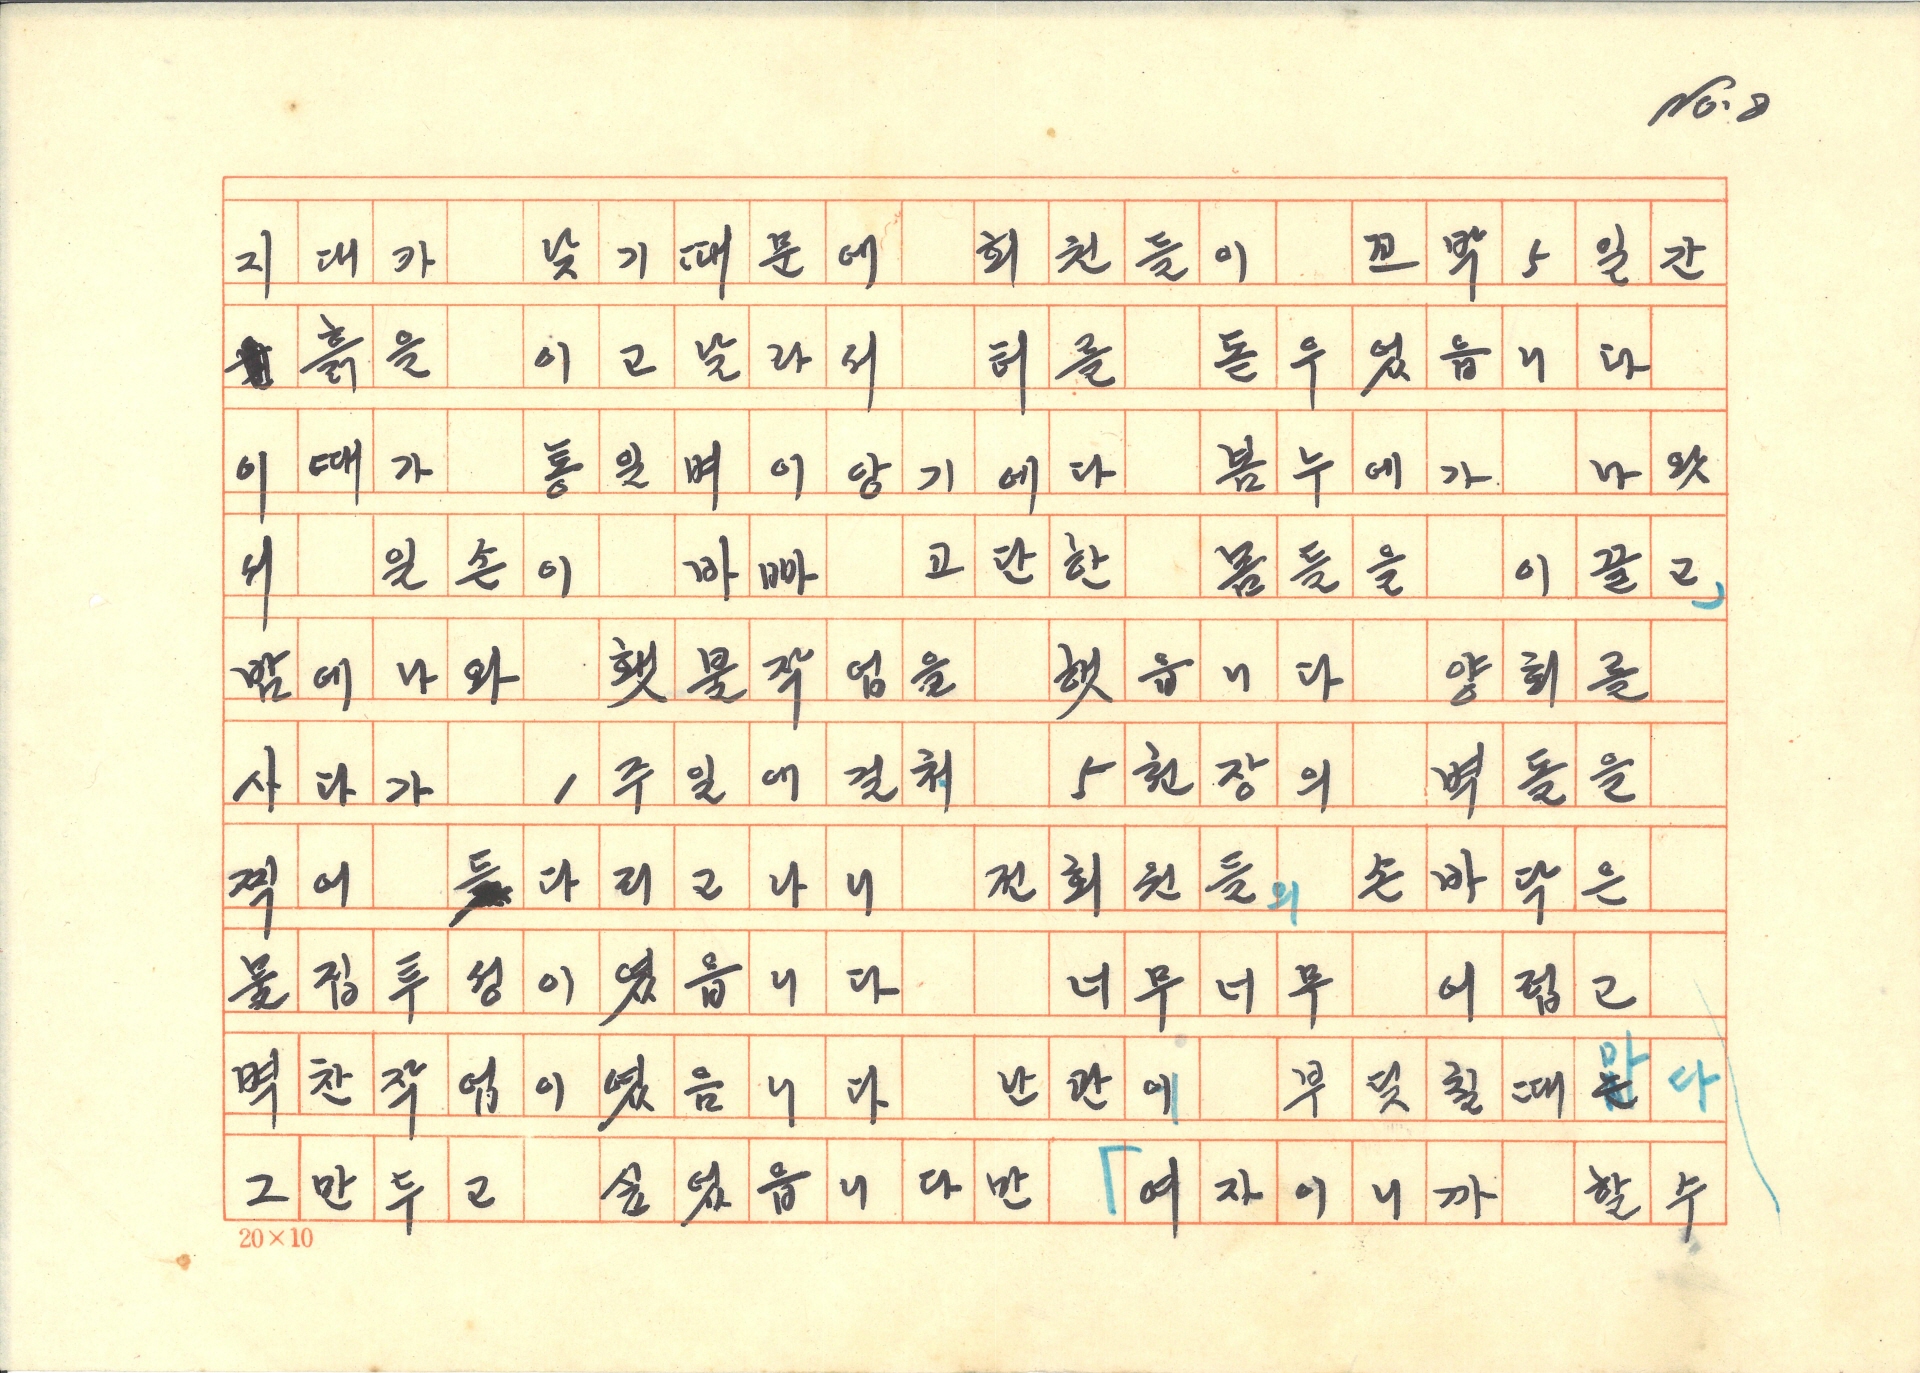 No. 8
지대가 낮기때문에 회원들이 꼬박5일간
흙을 이고날라서 터를 돋우었읍니다
이때가 통일벼이앙기에다 봄누에가 나왔
서 일손이 바빠 고단한 몸들을 이끌고
밤에나와 횃불작업을 했읍니다 양회를
사다가 1주일에걸쳐 5천장의 벽돌을
찍어 다리고나니 전회원들의 손바닥은
물집투성이였읍니다 너무너무 어렵고
벽찬작업이였음니다 난관에 부딪칠때마다
그만두고 싶었읍니다만 「여자이니까 할수
20×10